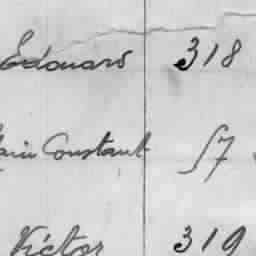 Edouard 318
Constant 57
Victor 319